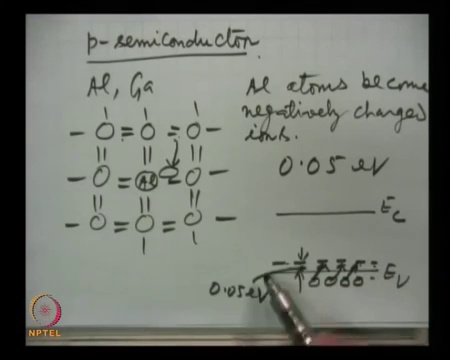 p-semiconductor
Al, Ga
Al
Al atoms become
negatively charged
ions.
0.05 eV
Ec
Ev
0.05 eV
NPTEL